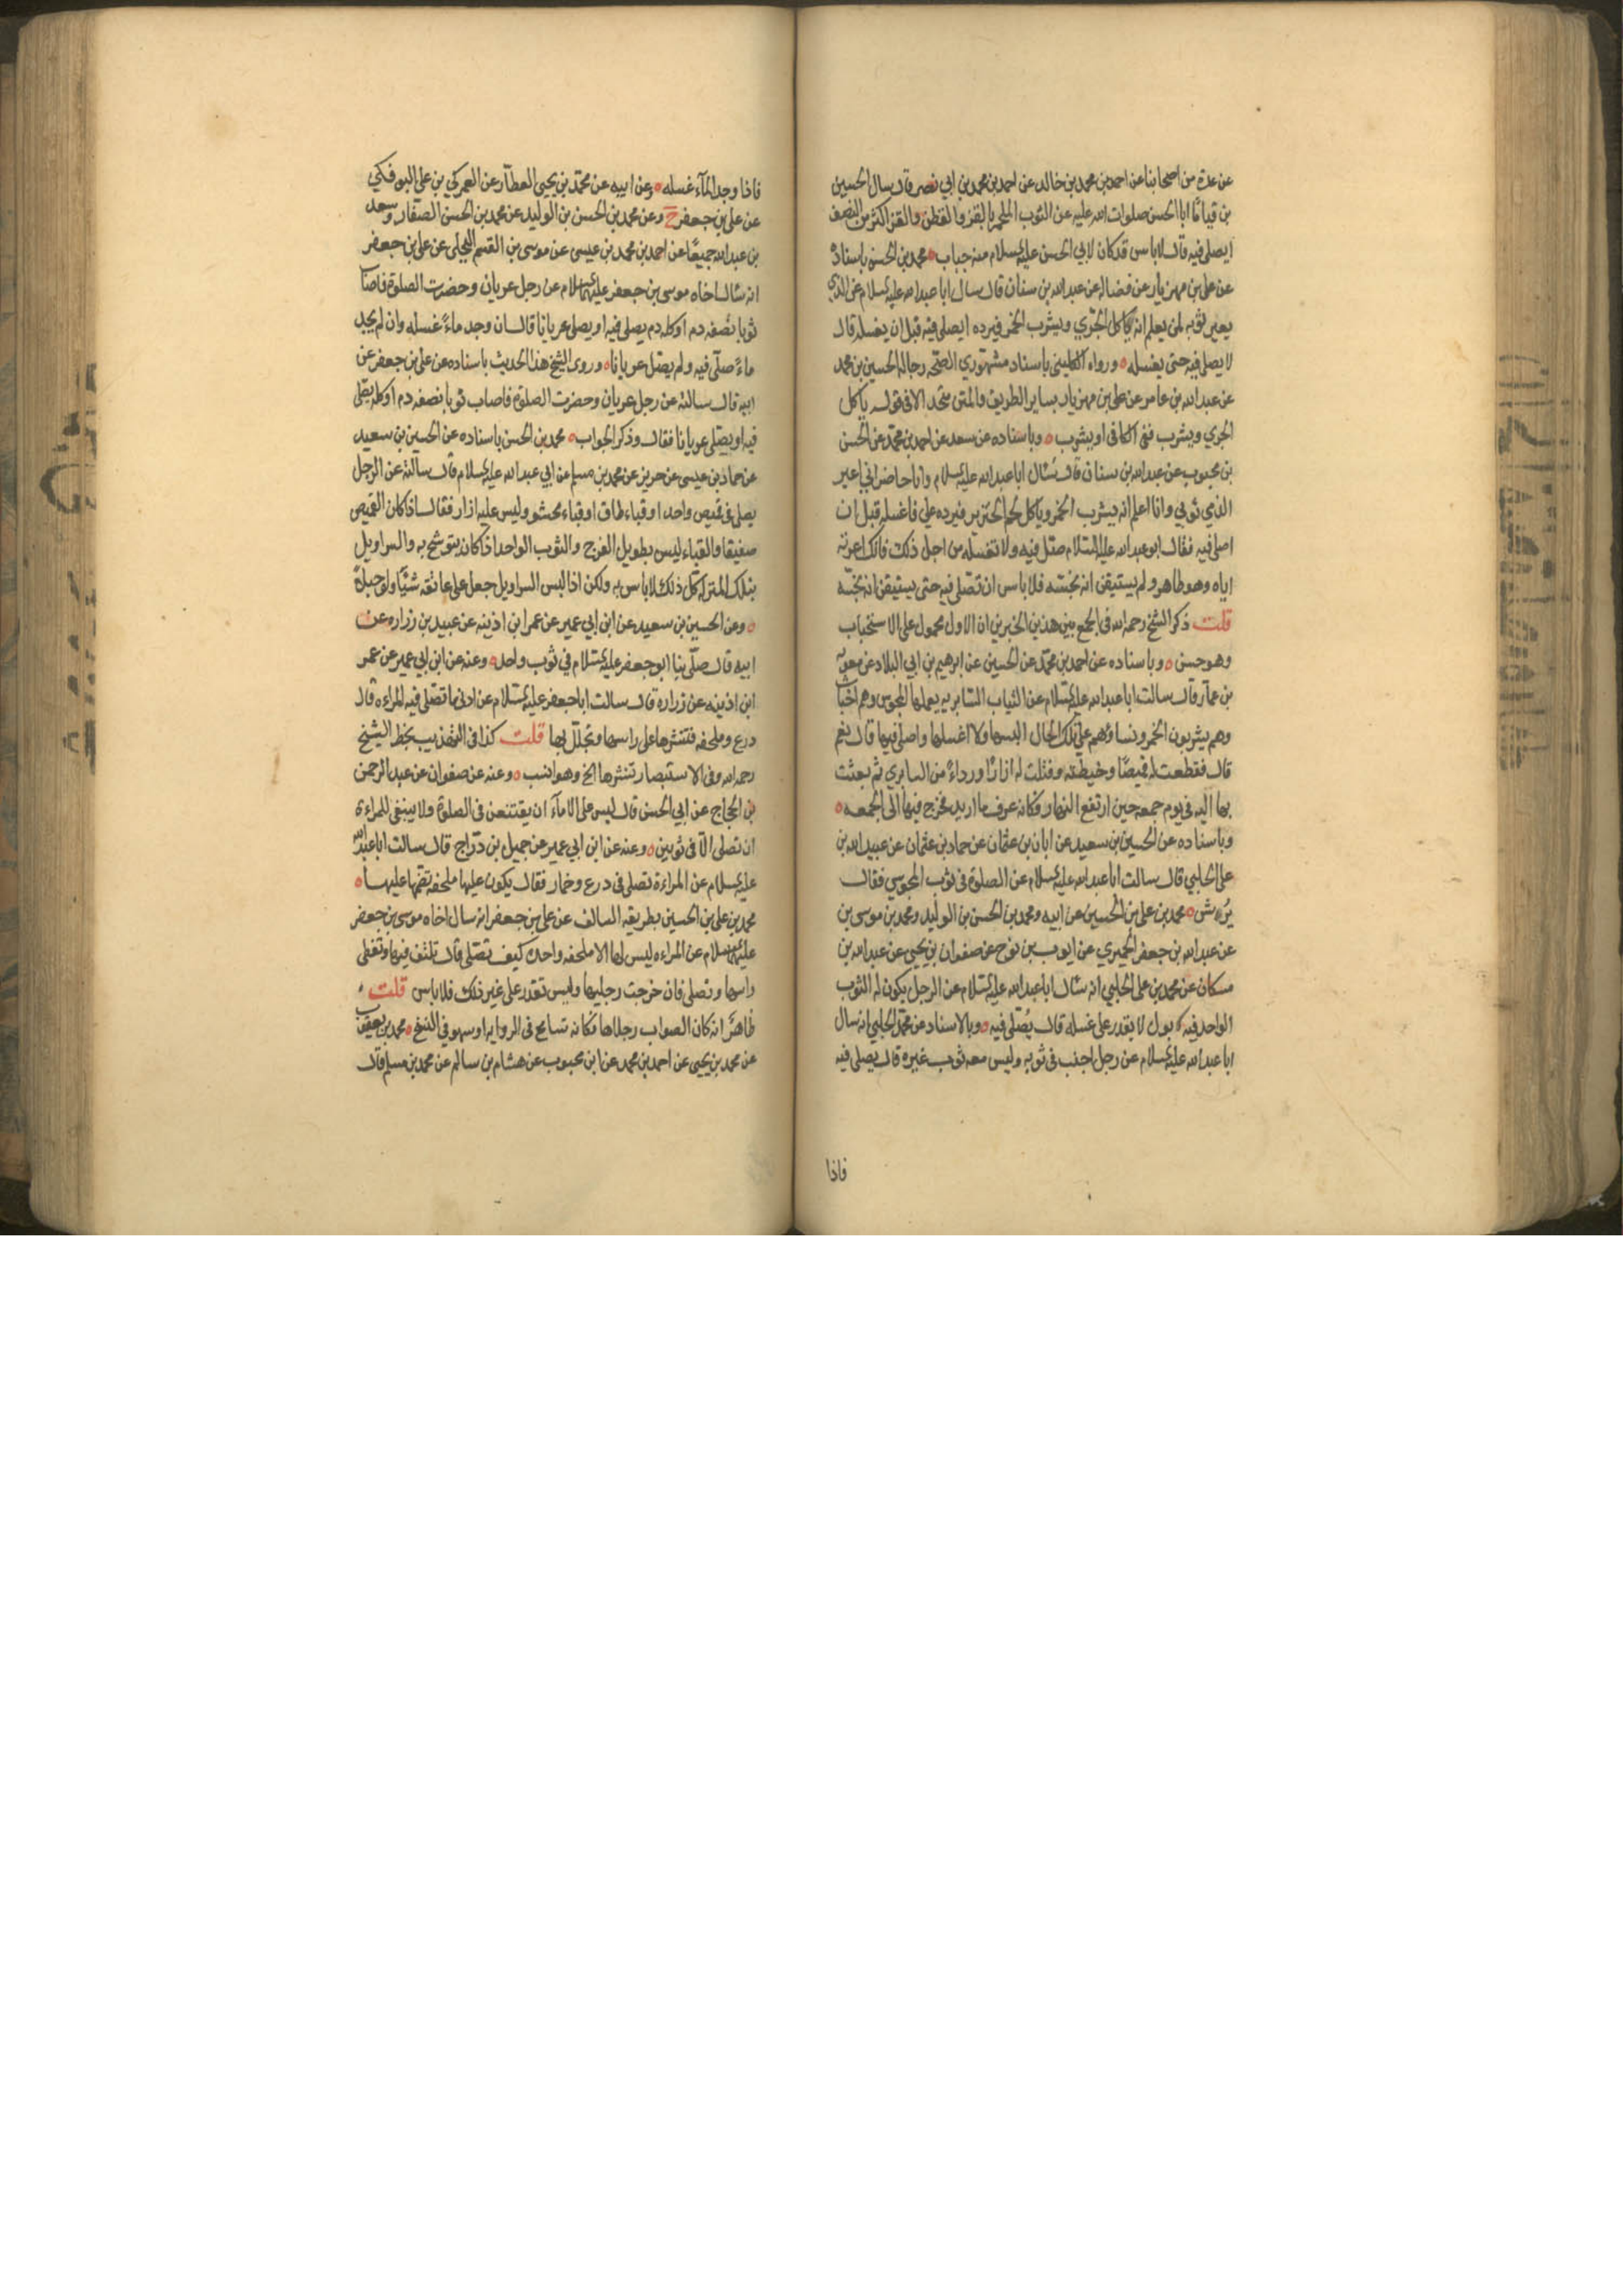 عن عدة من اصحابنا عن احمد بن محمد بن خالد عن احمد بن محمد بن ابي نصر قال سال الحسين
بن قياما ابا الحسن صلوات الله عليه عن الثوب الملحم بالقز والقطن والقز اكثر من النصف
ايصلى فيه قال لا باس قد كان لابي الحسن عليه السلام منه جباب ٥ محمد بن الحسن باسناده
عن علي بن مهزيار عن فضاله عن عبد الله بن سنان قال سال ابا عبد الله عليه السلام عن الذي
يعير ثوبه لمن يعلم انه ياكل الجري ويشرب الخمر فيرده ايصلي فيه قبل ان يغسله قال
لا يصلي فيه حتى يغسله ٥ ورواه الكليني باسناد مشهوري الصحة رجاله الحسين بن محمد
عن عبد الله بن عامر عن علي بن مهزيار بساير الطريق والمتن متحد الا في قوله ياكل
الجري ويشرب ففي الكافي او يشرب ٥ وباسناده عن سعد عن احمد بن محمد عن الحسن
بن محبوب عن عبد الله بن سنان قال سأل ابا عبد الله عليه السلام وانا حاضر اني اعير
الذمي ثوبي وانا اعلم انه يشرب الخمر وياكل لحم الخنزير فيرده علي فاغسله قبل ان
اصلي فيه فقال ابو عبد الله عليه السلام صل فيه ولا تغسله من اجل ذلك فانك اعرته
اياه وهو طاهر ولم يستيقن انه نجسه فلا باس ان تصلي فيه حتى يستيقن انه نجسه
قلت ذكر الشيخ رحمه الله في الجمع بين هذين الخبرين ان الاول محمول على الاستحباب
وهو حسن ٥ وباسناده عن احمد بن محمد عن الحسين عن ابرهيم بن ابي البلاد عن معوية
بن عمار قال سالت ابا عبد الله عليه السلام عن الثياب السابرية يعملها المجوس وهم اخباث
وهم يشربون الخمر ونساؤهم على تلك الحال البسها ولا اغسلها واصلي فيها قال نعم
قال فقطعت له قميصا وخيطته وفتلت له ازارا ورداء من السابري ثم بعثت
بها اليه في يوم جمعه حين ارتفع النهار فكانه عرف ما اريد فخرج فيها الى الجمعه ٥
وباسناده عن الحسين بن سعيد عن ابان بن عثمان عن حماد بن عثمان عن عبيد الله بن
علي الحلبي قال سالت ابا عبد الله عليه السلام عن الصلوة في ثوب المجوسي فقال
يرش ٥ محمد بن علي بن الحسين عن ابيه ومحمد بن الحسن بن الوليد ومحمد بن موسى بن
عن عبد الله بن جعفر الحميري عن ايوب بن نوح عن صفوان بن يحيى عن عبد الله بن
مسكان عن محمد بن علي الحلبي انه سأل ابا عبد الله عليه السلام عن الرجل يكون له الثوب
الواحد فيه بول لا يقدر على غسله قال يصلي فيه ٥ وبالاسناد عن محمد الحلبي انه سال
ابا عبد الله عليه السلام عن رجل اجنب في ثوبه وليس معه ثوب غيره قال يصلي فيه
فاذا
فاذا وجد المآء غسله ٥ وعن ابيه عن محمد بن يحيى العطار عن العمركي بن علي البوفكي
عن علي بن جعفر ح وعن محمد بن الحسن بن الوليد عن محمد بن الحسن الصفار وسعد
بن عبد الله جميعا عن احمد بن محمد بن عيسى عن موسى بن القسم البجلي عن علي بن جعفر
انه سأل اخاه موسى بن جعفر عليهما السلام عن رجل عريان وحضرت الصلوة فاصاب
ثوبا نصفه دم او كله دم يصلي فيه او يصلي عريانا قال ان وجد ماء غسله وان لم يجد
ماء صلى فيه ولم يصل عريانا ٥ وروى الشيخ هذا الحديث باسناده عن علي بن جعفر عن
اخيه قال سالته عن رجل عريان وحضرت الصلوة فاصاب ثوبا نصفه دم او كله يصلي
فيه او يصلي عريانا فقال وذكر الجواب ٥ محمد بن الحسن باسناده عن الحسين بن سعيد
عن حماد بن عيسى عن حريز عن محمد بن مسلم عن ابي عبد الله عليه السلام قال سالته عن الرجل
يصلي في قميص واحد او قباء طاق او قباء محشو وليس عليه ازار فقال اذا كان القميص
صفيقا والقباء ليس بطويل الفرج والثوب الواحد اذا كان يتوشح به والسراويل
بتلك المنزلة كل ذلك لا باس به ولكن اذا لبس السراويل جعل على عاتقه شيئا ولو حبلا
٥ وعن الحسين بن سعيد عن ابن ابي عمير عن عمر ابن اذينه عن عبيد بن زراره عن
ابيه قال صلى بنا ابو جعفر عليه السلام في ثوب واحد ٥ وعنه عن ابن ابي عمير عن عمر
ابن اذينه عن زراره قال سالت ابا جعفر عليه السلام عن ادنى ما تصلي فيه المراءه قال
درع وملحفه فتنشرها على راسها وتجلل بها قلت كذا في التهذيب بخط الشيخ
رحمه الله وفي الاستبصار تنشرها الخ وهو انسب ٥ وعنه عن صفوان عن عبد الرحمن
بن الحجاج عن ابي الحسن قال ليس على الامآء ان يقتنعن في الصلوة ولا ينبغي للمراءة
ان تصلي الا في ثوبين ٥ وعنه عن ابن ابي عمير عن جميل بن دراج قال سالت ابا عبد الله
عليه السلام عن المراءة تصلي في درع وخمار فقال يكون عليها ملحفه تضمها عليها ٥
محمد بن علي بن الحسين بطريقه السالف عن علي بن جعفر انه سال اخاه موسى بن جعفر
عليهما السلام عن المراءه ليس لها الا ملحفه واحدة كيف تصلي قال تلتف فيها وتغطي
راسها وتصلي فان خرجت رجليها وليس تقدر على غير ذلك فلا باس قلت
ظاهرا انه كان الصواب رجلاها فكانه تسامح في الرواية او سهو في النسخ ٥ محمد بن يعقوب
عن محمد بن يحيى عن احمد بن محمد عن ابن محبوب عن هشام بن سالم عن محمد بن مسلم قال